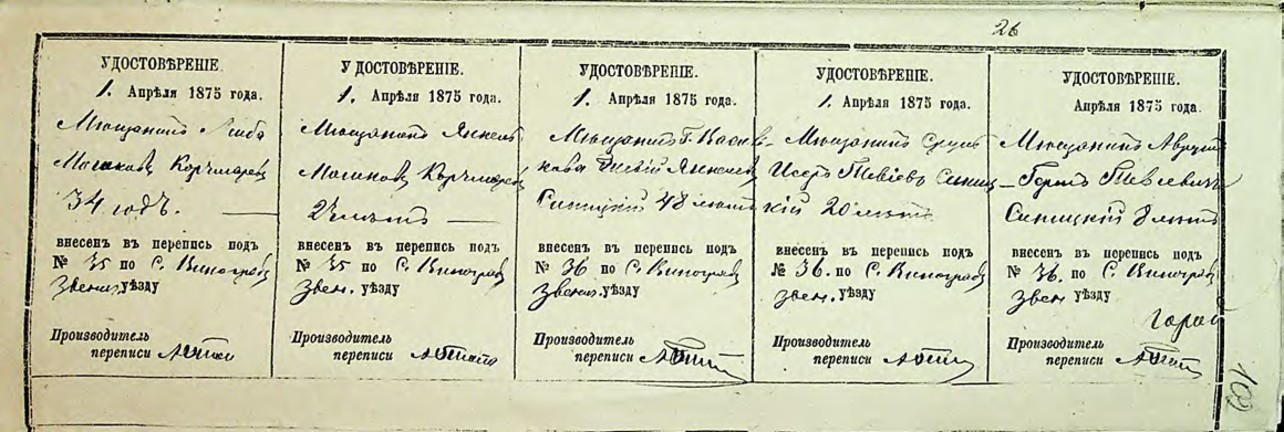 26
УДОСТОВѢРЕНІЕ.
1. Апрѣля 1875 года.
Мѣщанинъ
Корчмаревъ
34 годъ.
внесенъ въ перепись подъ
№ 35 по С. Виноградъ
Звениг. уѣзду
Производитель
переписи
УДОСТОВѢРЕНІЕ.
1. Апрѣля 1875 года.
Мѣщанинъ Янкель
Корчмаревъ
лѣтъ
внесенъ въ перепись подъ
№ 35 по С. Виноградъ
Звен. уѣзду
Производитель
переписи
УДОСТОВѢРЕНІЕ.
1. Апрѣля 1875 года.
Мѣщанинъ г. Василь-
кова Янкелев
Синицкій 48 лѣтъ
внесенъ въ перепись подъ
№ 36 по С. Виноградъ
Звениг. уѣзду
Производитель
переписи
УДОСТОВѢРЕНІЕ.
1. Апрѣля 1875 года.
Мѣщанинъ Сруль
Иось Тевіевъ Синиц-
кій 20 лѣтъ
внесенъ въ перепись подъ
№ 36. по С. Виноградъ
Звен. уѣзду
Производитель
переписи
УДОСТОВѢРЕНІЕ.
Апрѣля 1875 года.
Мѣщанинъ Аврумъ
Тевіевичъ
Синицкій 8 лѣтъ
внесенъ въ перепись подъ
№ 36. по С. Виноградъ
Звен уѣзду
Производитель
переписи
102